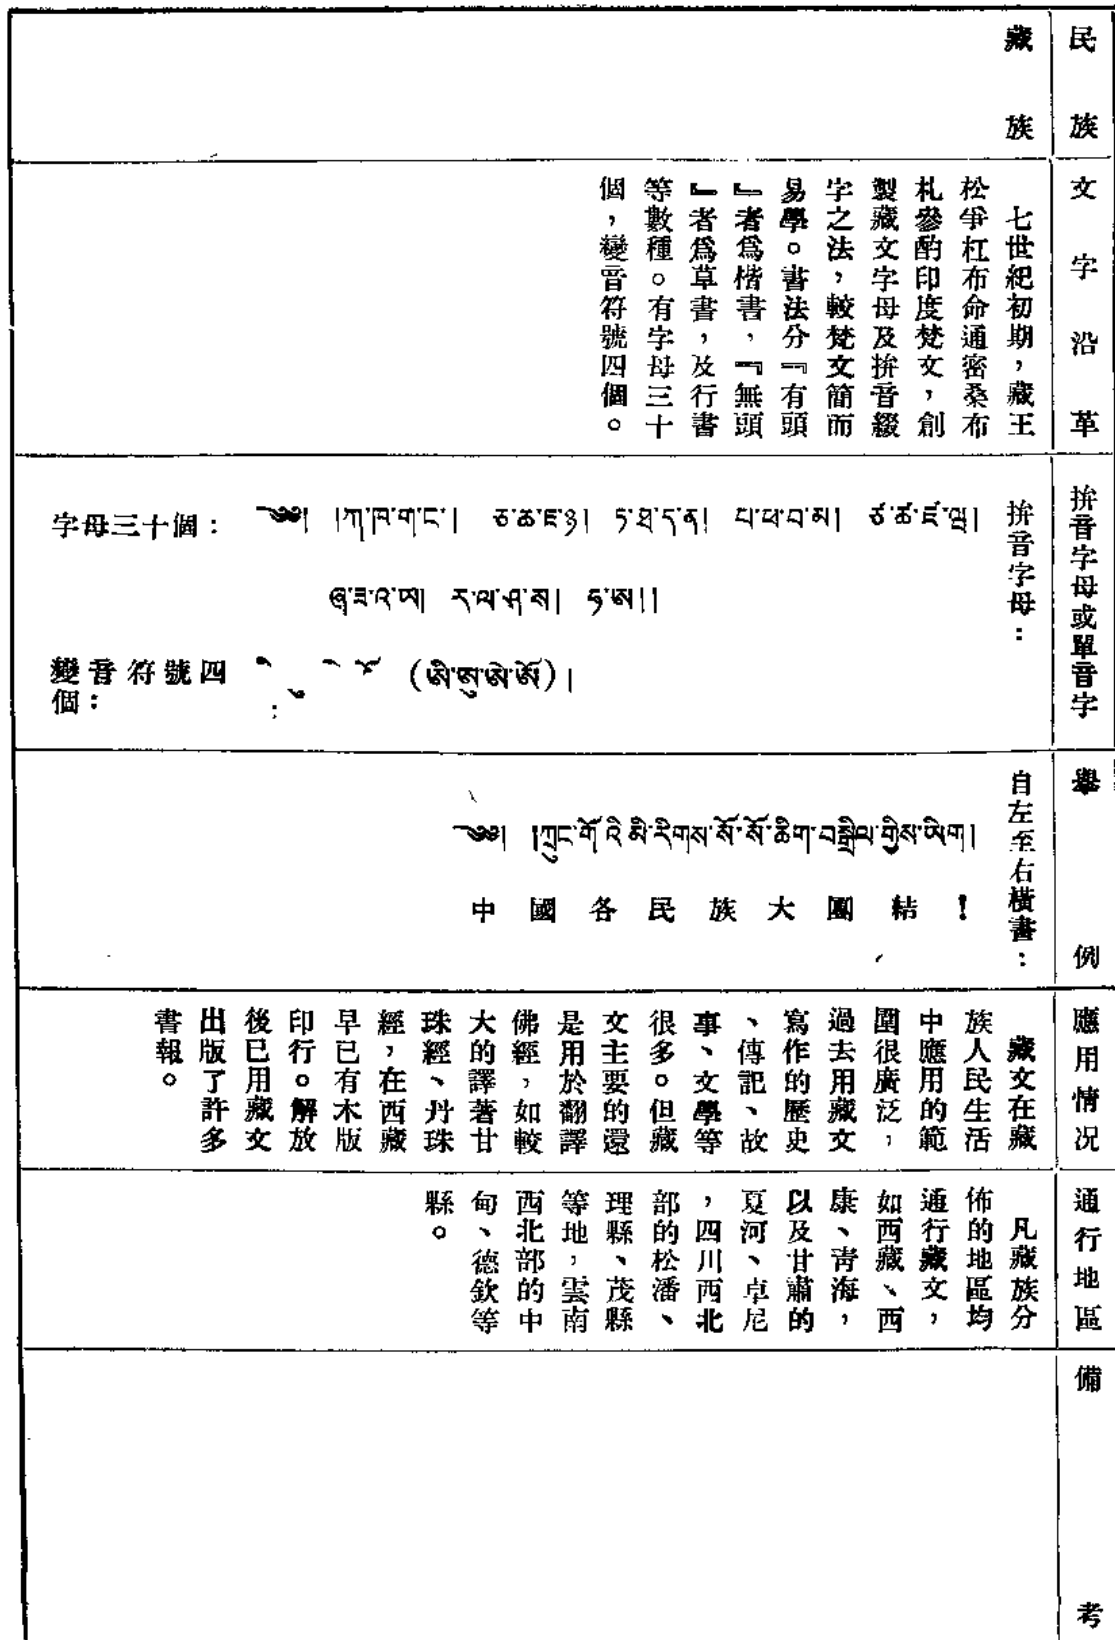 民族
文字沿革
拚音字母或單音字
舉例
應用情況
通行地區
備考
藏族
七世紀初期，藏王
松爭杠布命通密桑布
札參酌印度梵文，創
製藏文字母及拚音綴
字之法，較梵文簡而
易學。書法分『有頭
』者爲楷書，『無頭
』者爲草書，及行書
等數種。有字母三十
個，變音符號四個。
拚音字母：
字母三十個： ༄༅། །ཀ་ཁ་ག་ང་། ཅ་ཆ་ཇ་ཉ། ཏ་ཐ་ད་ན། པ་ཕ་བ་མ། ཙ་ཚ་ཛ་ཝ།
ཞ་ཟ་འ་ཡ། ར་ལ་ཤ་ས། ཧ་ཨ།།
變音符號四
個： ི ུ ེ ོ (ཨི་ཨུ་ཨེ་ཨོ)།
自左至右橫書：
༄༅། །ཀྲུང་གོ་འི་མི་རིགས་སོ་སོ་ཆིག་བསྒྲིལ་གྱིས་ཤིག།
中國各民族大團結！
藏文在藏
族人民生活
中應用的範
圍很廣泛，
過去用藏文
寫作的歷史
、傳記、故
事、文學等
很多。但藏
文主要的還
是用於翻譯
佛經，如較
大的譯著甘
珠經、丹珠
經，在西藏
早已有木版
印行。解放
後已用藏文
出版了許多
書報。
凡藏族分
佈的地區均
通行藏文，
如西藏、西
康、青海，
以及甘肅的
夏河、卓尼
，四川西北
部的松潘、
理縣、茂縣
等地，雲南
西北部的中
甸、德欽等
縣。